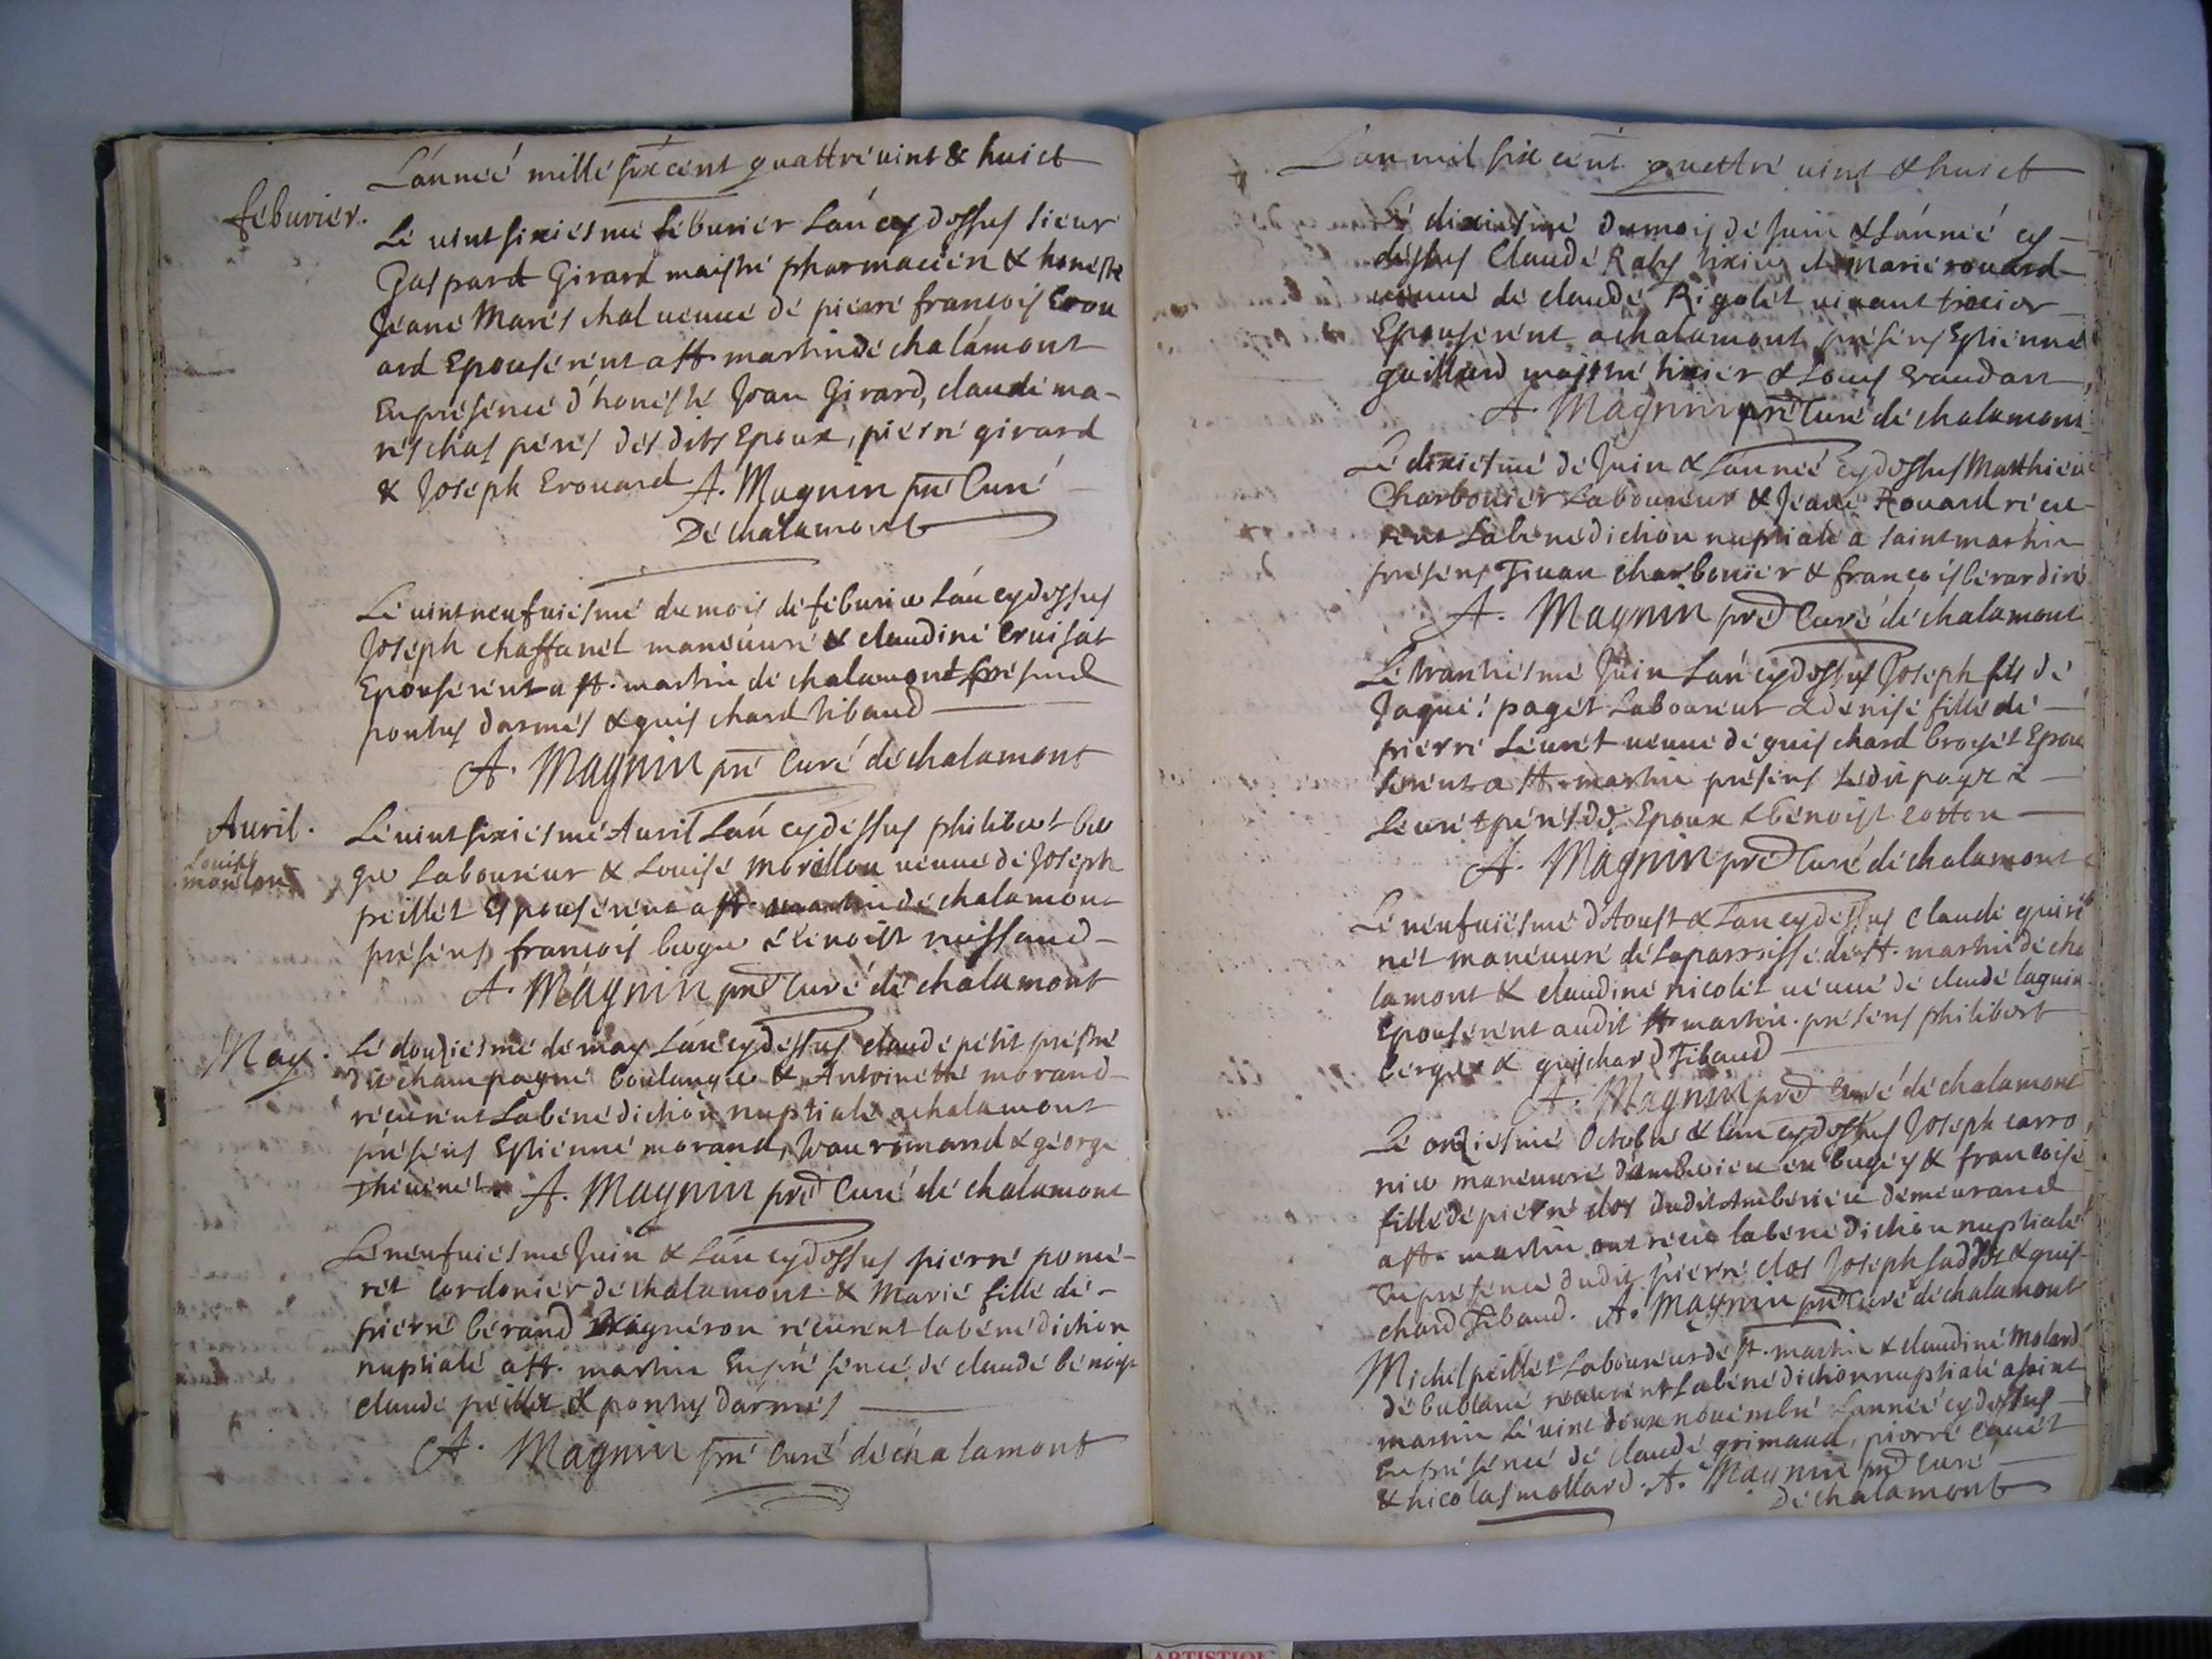 L'année mille six cent quattre uint & huict
febvrier.
Le uint sixiesme febvrier l'an cy dessus sieur
Gaspard Girard maistre pharmacien & honeste
Jeane Mareschal ueuue de pierre françois Erou
ard Epouserent a st. martin de chalamont
En presence d'honeste Jean Girard, claude ma-
reschal peres des dits Epoux, pierre girard
& Joseph Erouard A. Magnin pre Curé
De chalamont
Le uint neufuiesme du mois de febvrier l'an cy dessus
Joseph chaffanet maneuure & claudine Cruisat
Epouserent a st. martin de chalamont presend
pontus darmes & guischard tibaud
A. Magnin pre Curé de chalamont
Auril.
Louise
Le uint sixiesme Auril l'an cy dessus philibert ber
ger Laboureur & Louise morillon ueuue de Joseph
peillet Epouserent a st. martin de chalamont
presens françois berger & benoist
A. Magnin pre Curé de chalamont
May.
Le douziesme de may l'an cy dessus claude petit prestre
dit champagne boulanger & Antoinette morand
receurent la benediction nuptiale a chalamont
presens Estienne morand, Jean romand & george
theuenet. A. Magnin pre Curé de chalamont
Le neufuiesme Juin & l'an cy dessus pierre pome-
ret cordonier de chalamont & Marie fille de
pierre berand uigneron receurent la benediction
nuptiale a st. martin En presence de claude benoist
claude peillet & pontus darmes
A. Magnin pre Curé de chalamont
L'an mil six cent quattre uint & huict
Le dixiesme du mois de Juin & l'année cy
dessus Claude Raly tixier & Marie rouard
ueuue de claude Rigolet uiuant tixier
Epouserent a chalamont presens Estienne
guillard maistre tixier & Louis
A. Magnin pre Curé de chalamont
Le dixiesme de Juin & l'année cy dessus Matthieu
Charbonier Laboureur & Jeane Rouard receu
rent la benediction nuptiale a saint martin
presens Jean charbonier & françois berardin
A. Magnin pre Curé de chalamont
Le trantiesme Juin l'an cy dessus Joseph fils de
Jaque paget Laboureur & denise fille de
pierre Leuret ueuue de guischard broyet Epou
serent a st. martin presens ledit paget &
Leuret peres dd. Epoux & benoist cotton
A. Magnin pre Curé de chalamont
Le neufuiesme d'Aoust & l'an cy dessus claude guiri
net maneuure de la parroisse de st. martin de cha
lamont & claudine nicolet ueuue de claude
Epouserent audit st. martin. presens philibert
berger & guischard Tibaud
A. Magnin pre Curé de chalamont
Le onziesme Octobre & l'an cy dessus Joseph carro
nier maneuure d'amberieu en bugey & françoise
fille de pierre clos dudit Amberieu demeurand
a st. martin ont receu la benediction nuptiale
En presence dudit pierre clos Joseph & guis
chard Tibaud. A. Magnin pre Curé de chalamont
Michel peillet Laboureur de st. martin & claudine Molard
de bublane receurent la benediction nuptiale a saint
martin Le uint deux nouembre l'année cy dessus
En presence de claude grimaud, pierre
& nicolas mollard. A. Magnin pre Curé
De chalamont
ARTISTIQUE